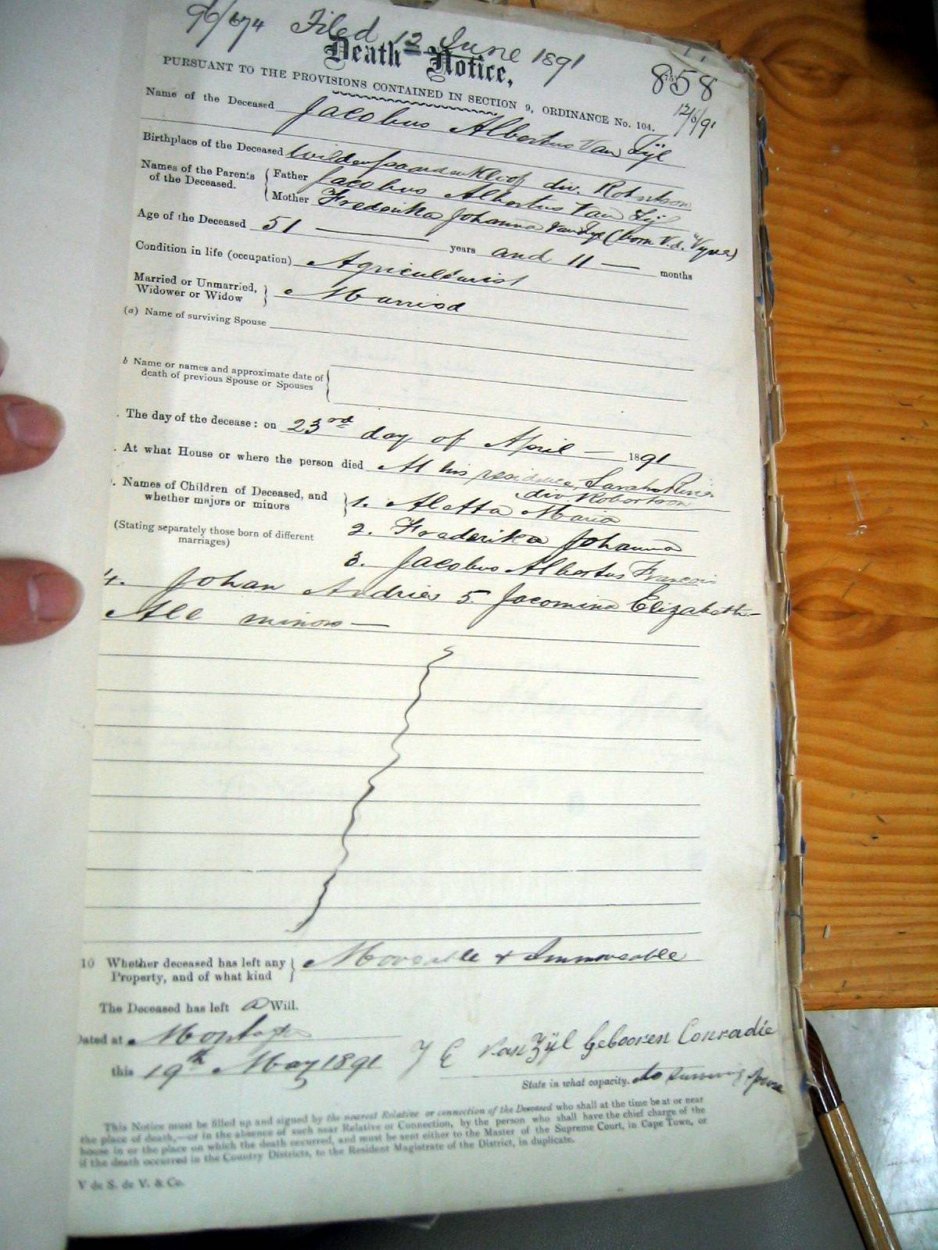 Filed 12 June 1891
Death Notice,
858
PURSUANT TO THE PROVISIONS CONTAINED IN SECTION 9, ORDINANCE No. 104.
12/6/91
Name of the Deceased Jacobus Albertus Van Zÿl
Birthplace of the Deceased div. Robertson
Names of the Parents of the Deceased. Father Jacobus Albertus Van Zÿl
Mother Frederika Johanna Van Zyl (born V.d. Vyver)
Age of the Deceased 51 years and 11 months
Condition in life (occupation) Agriculturist
Married or Unmarried, Widower or Widow Married
(a) Name of surviving Spouse
b Name or names and approximate date of
death of previous Spouse or Spouses
The day of the decease: on 23rd day of April 1891
At what House or where the person died At his residence
div Robertson
Names of Children of Deceased, and
whether majors or minors 1. Aletta Maria
(Stating separately those born of different
marriages)
2. Frederika Johanna
3. Jacobus Albertus Francois
4. Johan Andries 5. Jacomina Elizabeth
All minors
10 Whether deceased has left any
Property, and of what kind Moveable & Immoveable
The Deceased has left a Will.
Dated at Montagu
this 19th May 1891 J E Van Zÿl Gebooren Conradie
State in what capacity. surviving spouse
This Notice must be filled up and signed by the nearest Relative or connection of the Deceased who shall at the time be at or near
the place of death,—or in the absence of such near Relative or Connection, by the person who shall have the chief charge of the
house in or the place on which the death occurred, and must be sent either to the Master of the Supreme Court, in Cape Town, or
if the death occurred in the Country Districts, to the Resident Magistrate of the District, in duplicate.
V de S. de V. & Co.